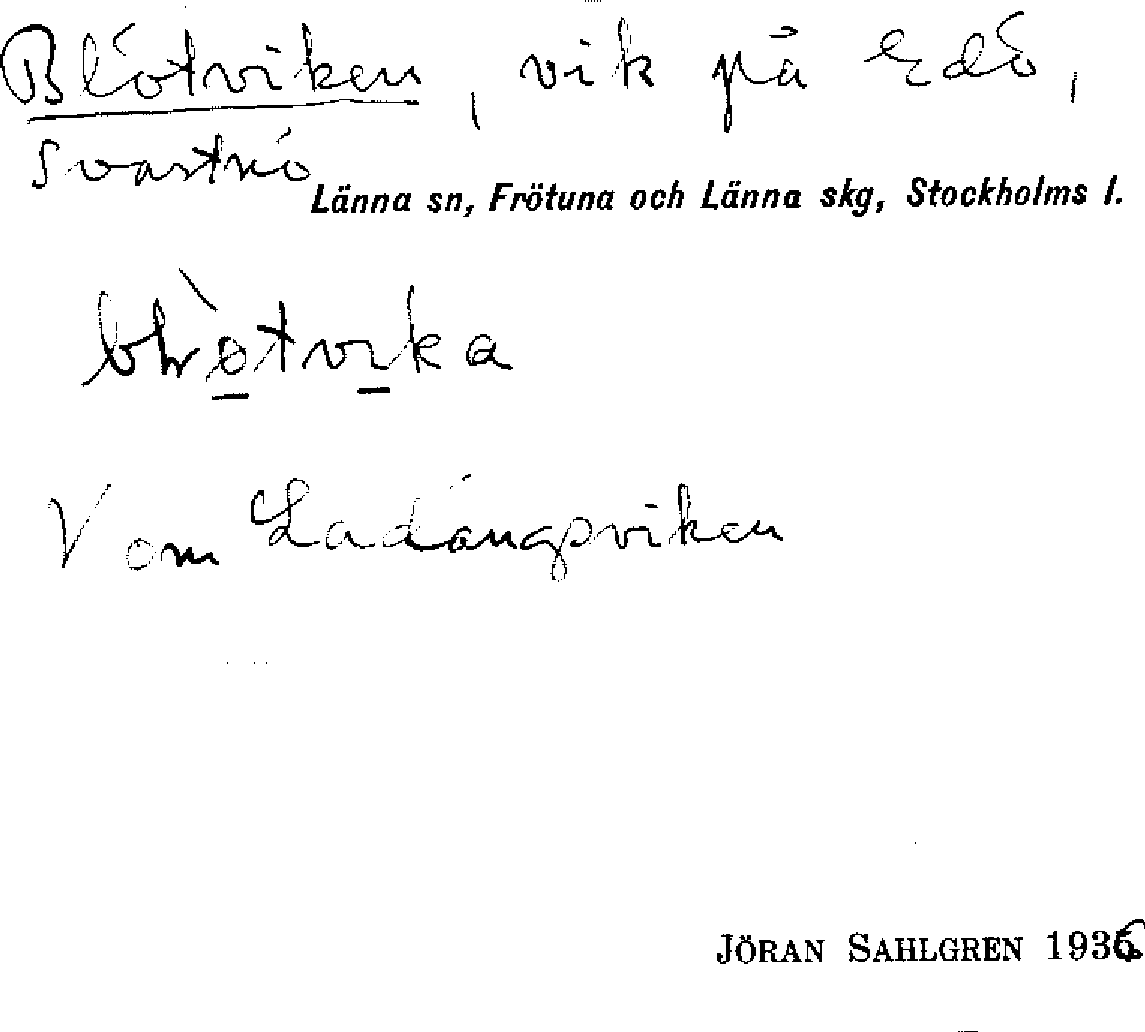 Blötviken, vik på Edö,
Svartnö
Länna sn, Frötuna och Länna skg, Stockholms l.
V om Ladängsviken
JÖRAN SAHLGREN 1936